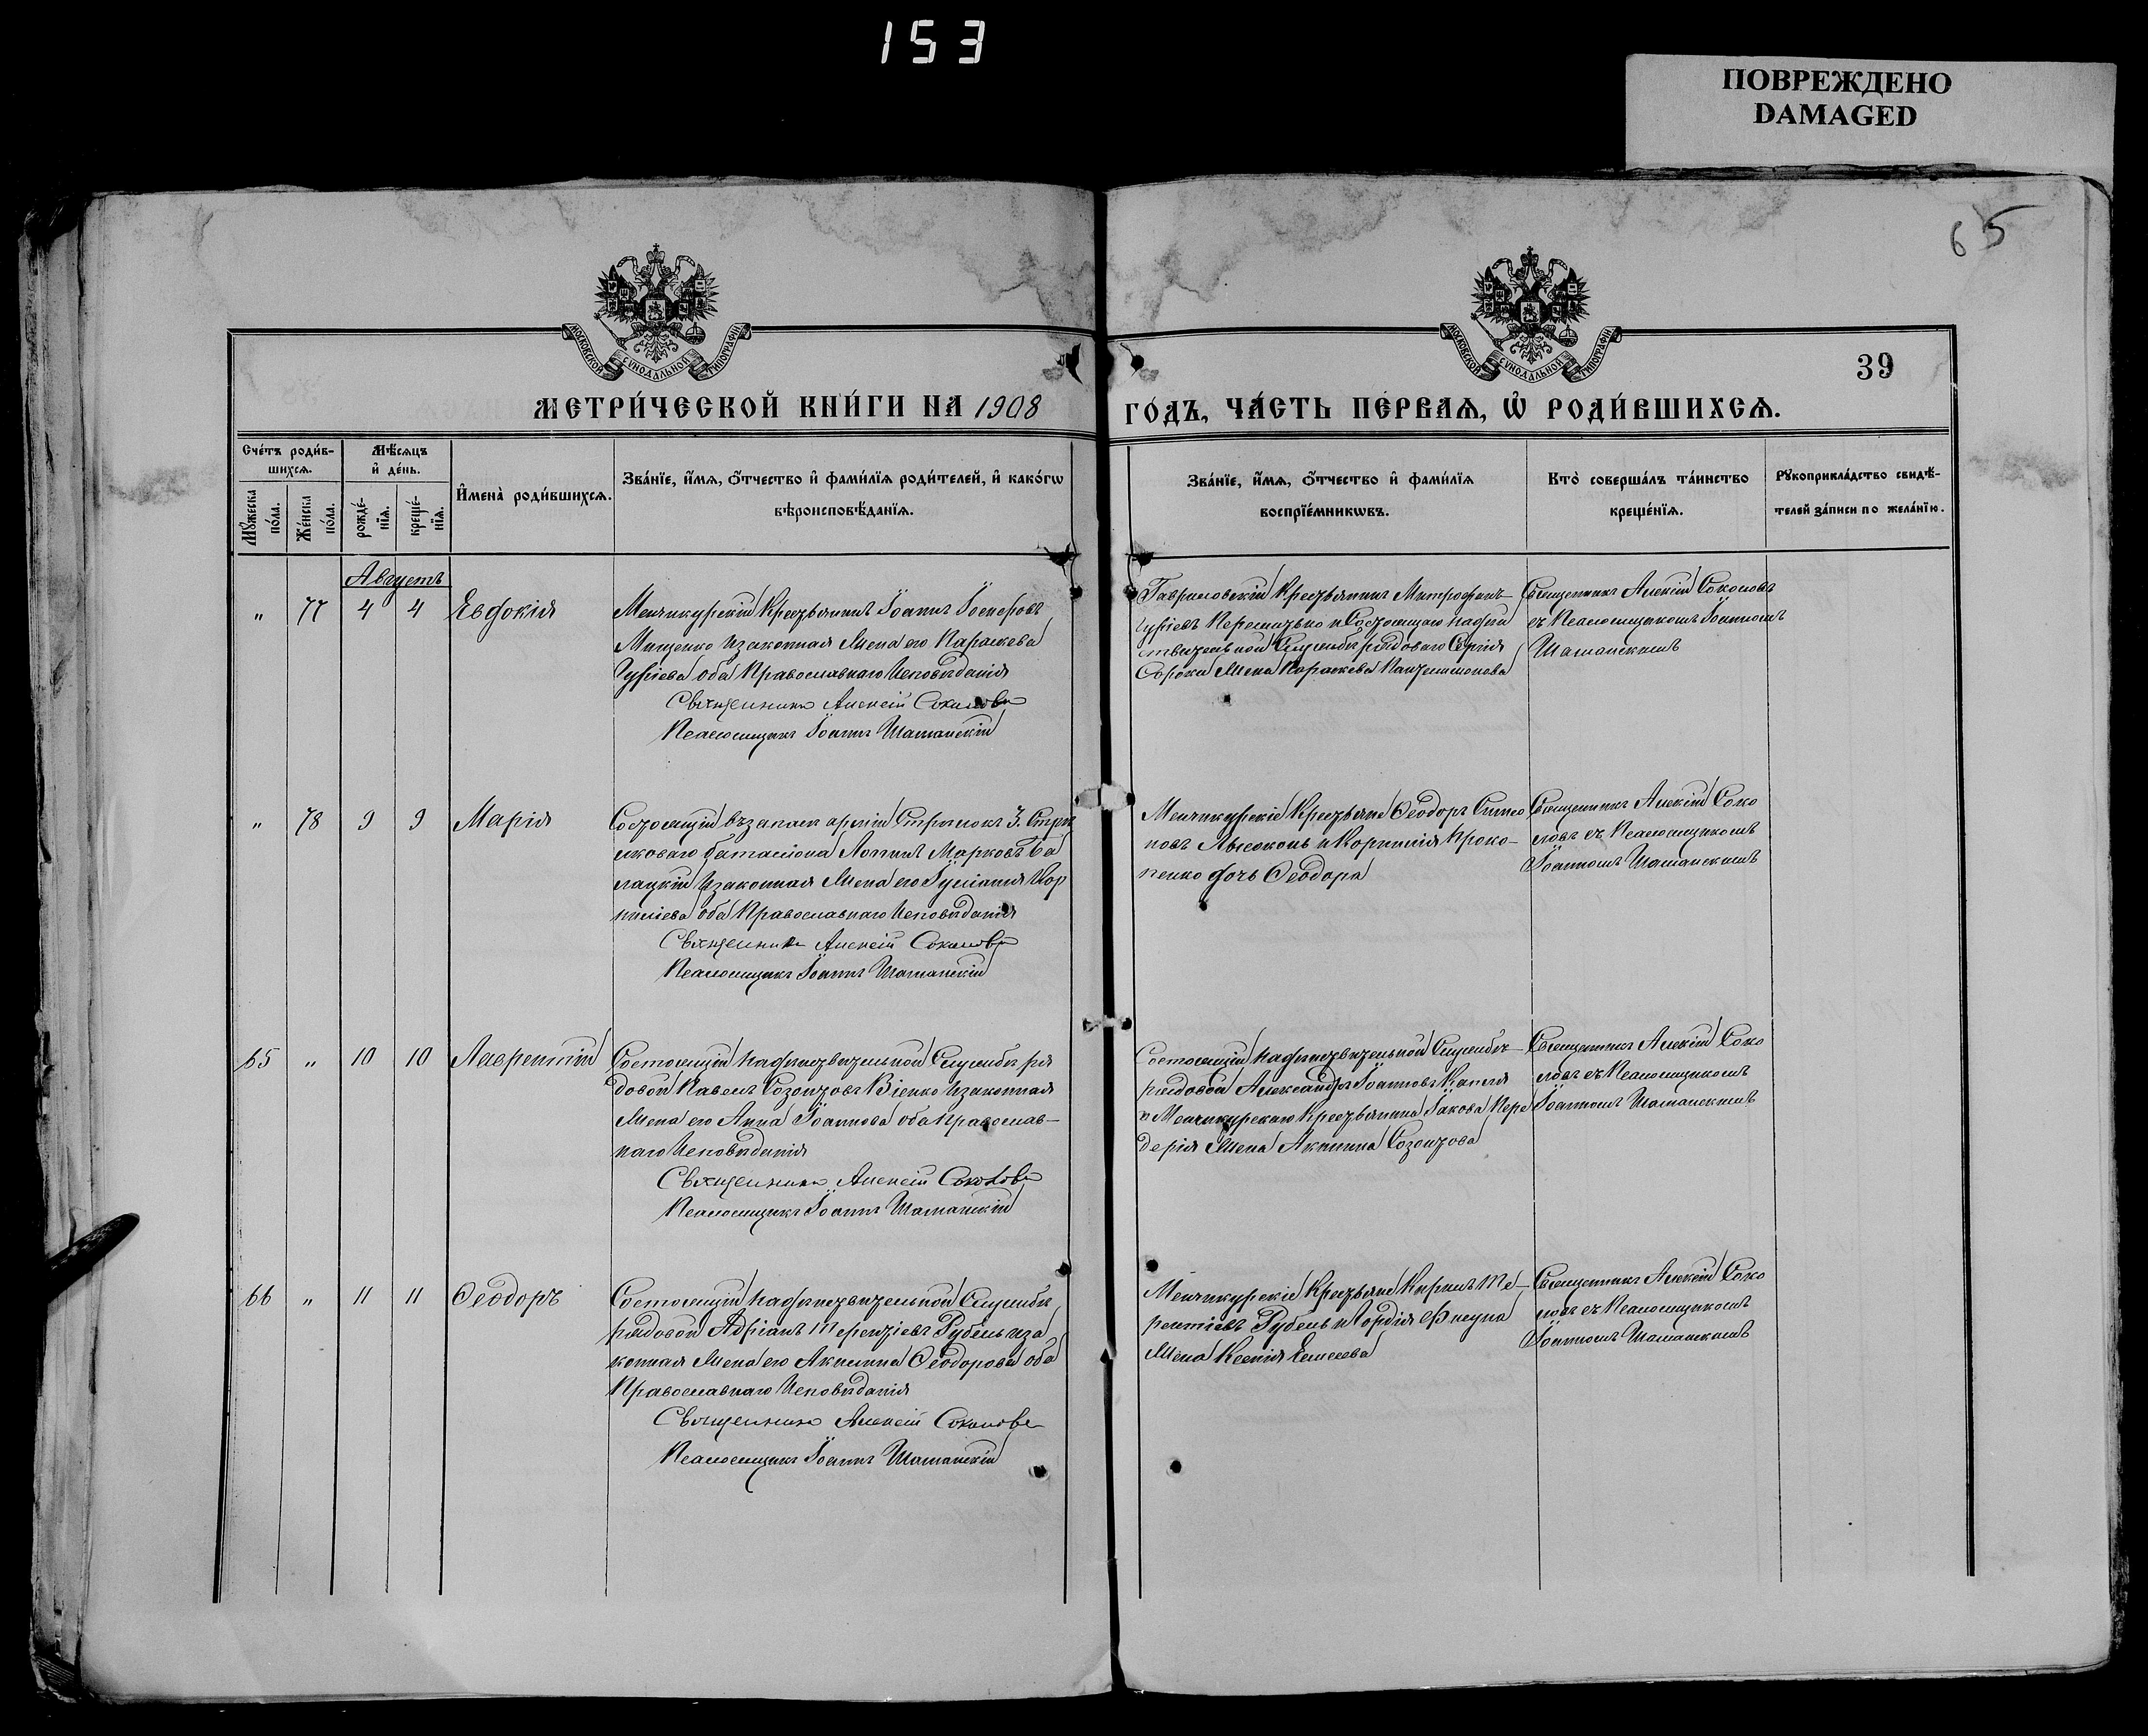 153
ПОВРЕЖДЕНО
DAMAGED
65
МОСКОВСКОЙ СѴНОДАЛЬНОЙ ТИПОГРАФІИ
МОСКОВСКОЙ СѴНОДАЛЬНОЙ ТИПОГРАФІИ
39
МЕТРИ́ЧЕСКОЙ КНИ́ГИ НА 1908
ГО́ДЪ, ЧА́СТЬ ПЕ́РВАѦ, Ѡ҆ РОДИ́ВШИХСѦ.
Сче́тъ роди́в-
шихсѧ.
Мѣ́сѧцъ
и҆ де́нь.
Мꙋ́жеска
по́ла.
Же́нска
по́ла.
рожде́-
нїѧ.
креще́-
нїѧ.
И҆мена̀ роди́вшихсѧ.
Зва́нїе, и҆́мѧ, ѻ҆́тчество и҆ фами́лїѧ роди́телей, и҆ како́гѡ
вѣроисповѣ́данїѧ.
Зва́нїе, и҆́мѧ, ѻ҆́тчество и҆ фами́лїѧ
воспрїе́мникѡвъ.
Кто̀ соверша́лъ та́инство
креще́нїѧ.
Рꙋкоприкла́дство свидѣ́-
телей за́писи по жела́нїю.
Августъ
" 77 4 4 Евдокія
Менчикурскій Крестьянинъ Іоаннъ Іосифовъ
Мищенко и законная жена его Параскева
Гуріева оба Православнаго Исповѣданія
Священникъ Алексій Соколовъ
Псаломщикъ Іоаннъ Шаманскій
Гавриловскій Крестьянинъ Митрофанъ
Гуріевъ и Состоящаго на дѣй
ствительной Службѣ рядоваго Сергія
Сорока жена Параскева Пантелимонова
Священникъ Алексій Соколовъ
съ Псаломщикомъ Іоанномъ
Шаманскимъ
" 78 9 9 Марія
Состоящій въ запасѣ арміи Стрѣлокъ 3. Стрѣ
лковаго баталіона Логинъ Марковъ Ба
лацкій и законная жена его Іуліанія Кор
ниліева оба Православнаго Исповѣданія
Священникъ Алексій Соколовъ
Псаломщикъ Іоаннъ Шаманскій
Менчикурскіе Крестьяне Ѳеодоръ Симео
новъ Лысоконь и Корнилія Проко-
пенко дочь Ѳеодора
Священникъ Алексій Соко
ловъ съ Псаломщикомъ
Іоанномъ Шаманскимъ
65 " 10 10 Лаврентій
Состоящій на дѣйствительной Службѣ ря
довой Павелъ Созонтовъ Віенко и законная
жена его Анна Іоаннова оба Православ-
наго Исповѣданія
Священникъ Алексій Соколовъ
Псаломщикъ Іоаннъ Шаманскій
Состоящій на дѣйствительной Службѣ
рядовой Александръ Іоанновъ Капля
и Менчикурскаго Крестьянина Іакова Пере
дерія жена Акилина Созонтова
Священникъ Алексій Соко
ловъ съ Псаломщикомъ
Іоанномъ Шаманскимъ
66 " 11 11 Ѳеодоръ
Состоящій на дѣйствительной Службѣ
рядовой Адріанъ Терентіевъ Рубель и за
конная жена его Акилина Ѳеодорова оба
Православнаго Исповѣданія
Священникъ Алексій Соколовъ
Псаломщикъ Іоаннъ Шаманскій
Менчикурскіе Крестьяне Кирилъ Те-
рентіевъ Рубель и Гордія
жена Ксенія Елисеева
Священникъ Алексій Соко
ловъ съ Псаломщикомъ
Іоанномъ Шаманскимъ